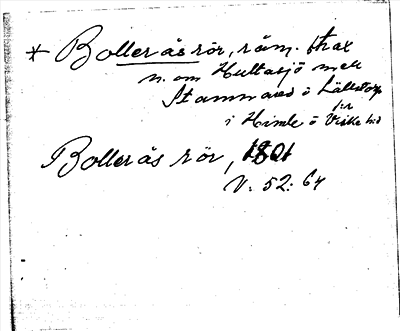 * Bolleråsrör, räm. strax
n. om Hultasjö mell.
Stamnared ö Källstorp
i Himle ö Viske hd
Bollerås rör, 1801
V: 52: 64